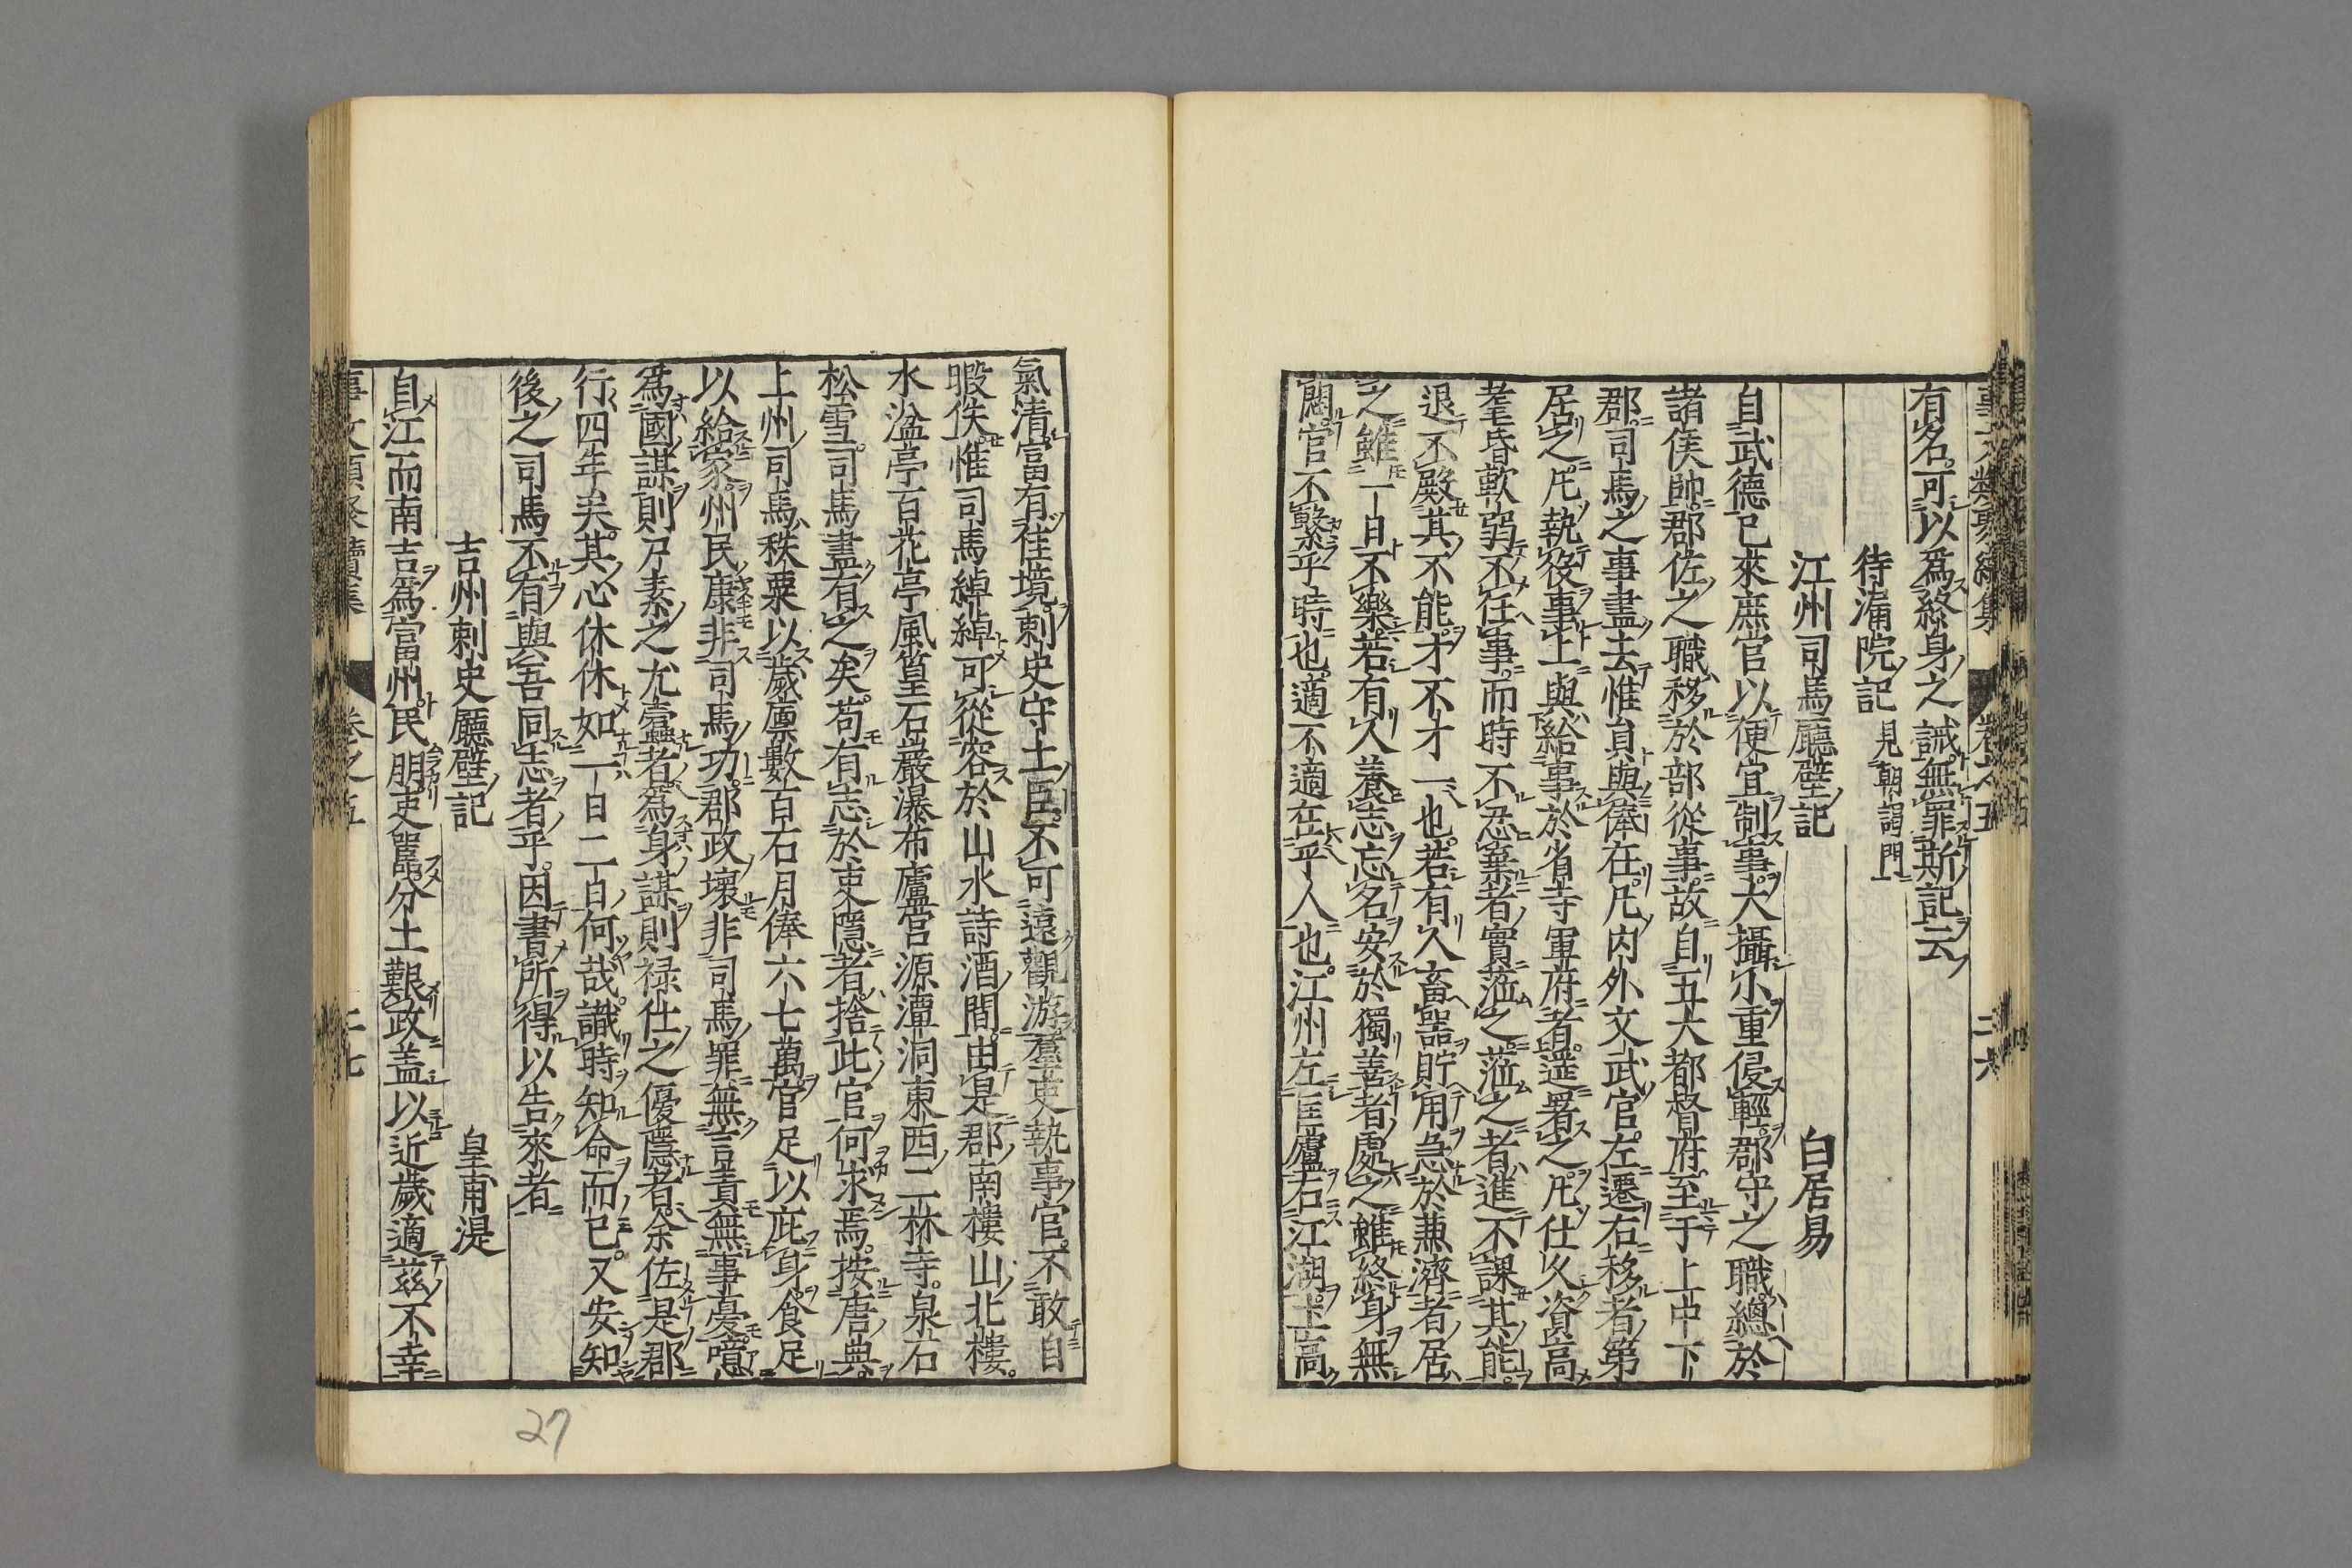 有名可以為終身之誡無罪斯記云
待漏院記 見朝謁門
江州司馬廳壁記 白居易
自武德已來庶官以便宜制事大攝小重侵輕郡守之職總於
諸侯帥郡佐之職移於部從事故自五大都督府至于上中下
郡司馬之事盡去惟員與俸在凡內外文武官左遷右移者第
居之凡執役事上與給事於省寺軍府者遥署之凡仕久資高
耄昏軟弱不任事而時不忍棄者實蒞之蒞之者進不課其能
退不殿其不能才不才一也若有人畜器貯用急於兼濟者居
之雖一日不樂若有人養志忘名安於獨善者處之雖終身無
悶官不繫乎時也適不適在乎人也江州左匡廬右江湖土高
氣清富有佳境刺史守土臣不可遠觀游羣吏執事官不敢自
暇佚惟司馬綽綽可從容於山水詩酒間由是郡南樓山北樓
水湓亭百花亭風篁石巖瀑布廬宮源潭洞東西二林寺泉石
松雪司馬盡有之矣苟有志於吏隱者捨此官何求焉按唐典
上州司馬秩粟以歲廪數百石月俸六七萬官足以庇身食足
以給家州民康非司馬功郡政壞非司馬罪無言責無事憂噫
為國謀則尸素之尤蠹者為身謀則禄仕之優隱者余佐是郡
行四年矣其心休休如一日二日何哉識時知命而已又安知
後之司馬不有與吾同志者乎因書所得以告來者
吉州刺史廳壁記 皇甫湜
自江而南吉為富州民朋吏嚚分土艱政盖以近歲適茲不幸
事文類聚續集 卷之五 二七
27